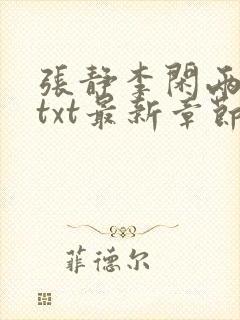 張靜李閑兩
txt最新章節
菲德尔